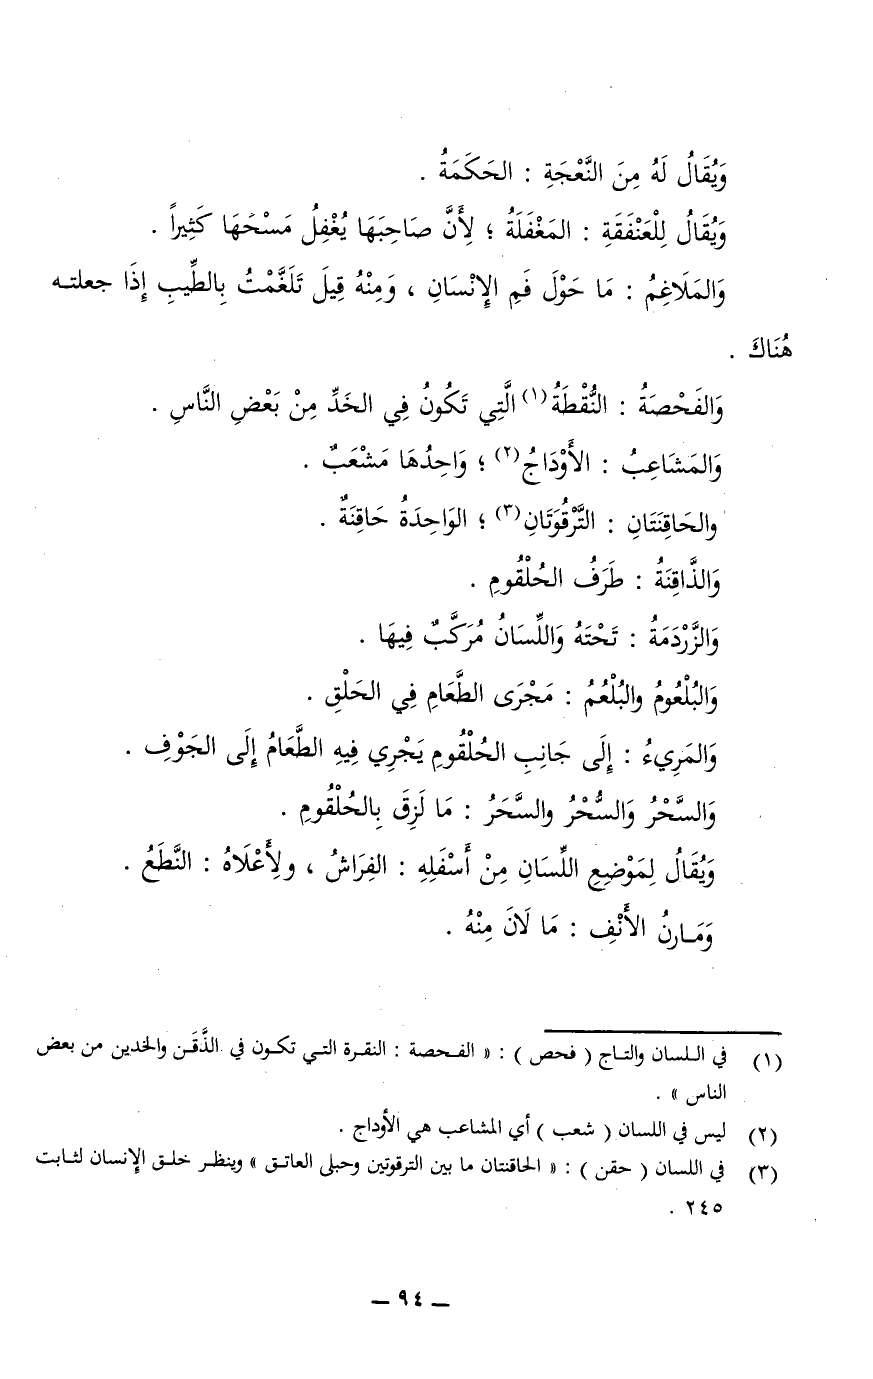 وَيُقَالُ لَهُ مِنَ النَّعْجَةِ : الحَكَمَةُ .
وَيُقَالُ لِلْعَنْفَقَةِ : المَغْفَلَةُ ؛ لِأَنَّ صَاحِبَهَا يُغْفِلُ مَسْحَهَا كَثِيراً .
وَالمَلَاغِمُ : مَا حَوْلَ فَمِ الإِنْسَانِ ، وَمِنْهُ قِيلَ تَلَغَّمْتُ بِالطِّيبِ إِذَا جعلتـه
هُنَاكَ .
وَالفَحْصَةُ : النُّقْطَةُ(١) الَّتِي تَكُونُ فِي الخَدِّ مِنْ بَعْضِ النَّاسِ .
وَالمَشَاعِبُ : الأَوْدَاجُ(٢) ؛ وَاحِدُهَا مَشْعَبٌ .
والحَاقِنَتَانِ : التَّرْقُوَتَانِ(٣) ؛ الوَاحِدَةُ حَاقِنَةٌ .
وَالذَّاقِنَةُ : طَرَفُ الحُلْقُومِ .
وَالزَّرْدَمَةُ : تَحْتَهُ وَاللِّسَانُ مُرَكَّبٌ فِيهَا .
وَالبُلْعُومُ والبُلْعُمُ : مَجْرَى الطَّعَامِ فِي الحَلْقِ .
وَالمَرِيءُ : إِلَى جَانِبِ الحُلْقُومِ يَجْرِي فِيهِ الطَّعَامُ إِلَى الجَوْفِ .
وَالسَّحْرُ وَالسُّحْرُ والسَّحَرُ : مَا لَزِقَ بِالحُلْقُومِ .
وَيُقَالُ لِمَوْضِعِ اللِّسَانِ مِنْ أَسْفَلِهِ : الفِرَاشُ ، ولِأَعْلَاهُ : النَّطَعُ .
وَمَـارِنُ الأَنْفِ : مَا لَانَ مِنْهُ .
(١) في اللسان والتاج ( فحص ) : « الفحصة : النقرة التي تكون في الذَّقَن والخدين من بعض
الناس » .
(٢) ليس في اللسان ( شعب ) أي المشاعب هي الأوداج .
(٣) في اللسان ( حقن ) : « الحاقنتان ما بين الترقوتين وحبلى العاتق » وينظر خلق الإنسان لثابت
٢٤٥ .
— ٩٤ —